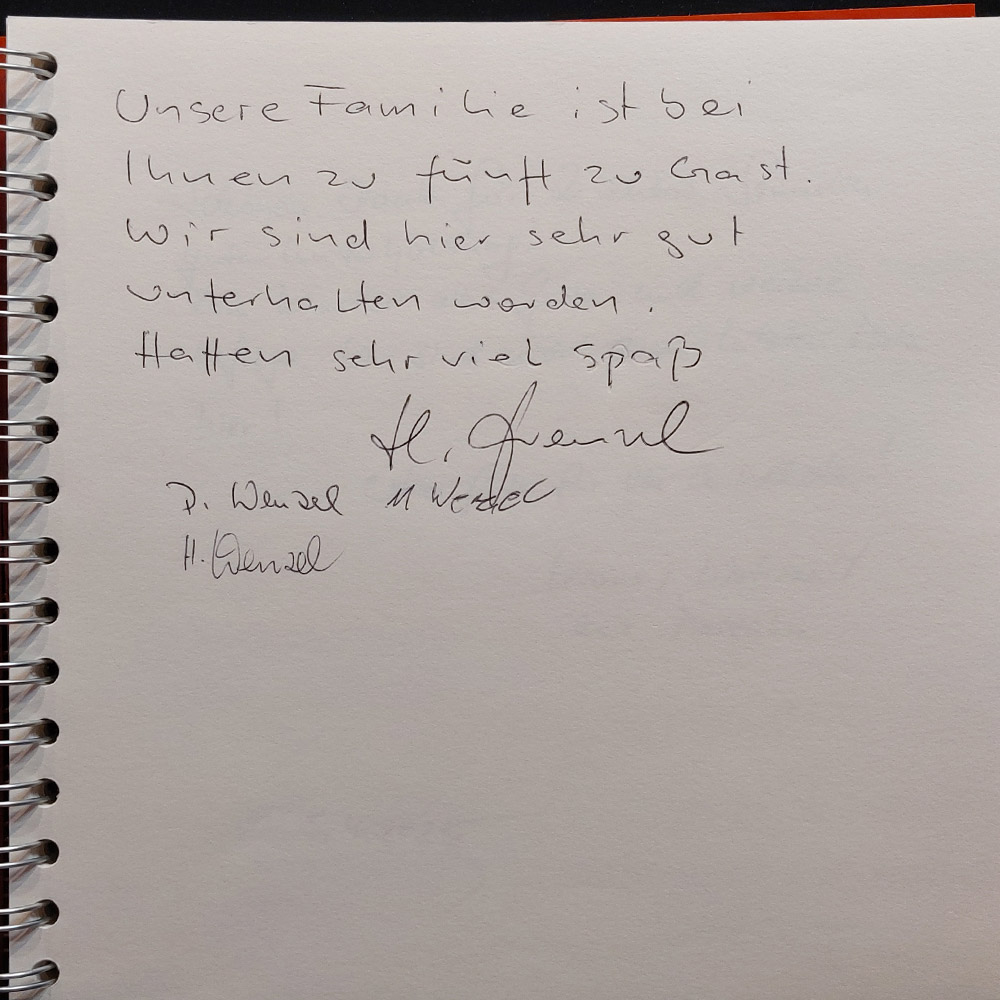 Unsere Familie ist bei
Ihnen zu fünft zu Gast.
Wir sind hier sehr gut
unterhalten worden.
Hatten sehr viel Spaß
H.
D. Wenzel M Wenzel
H. Wenzel